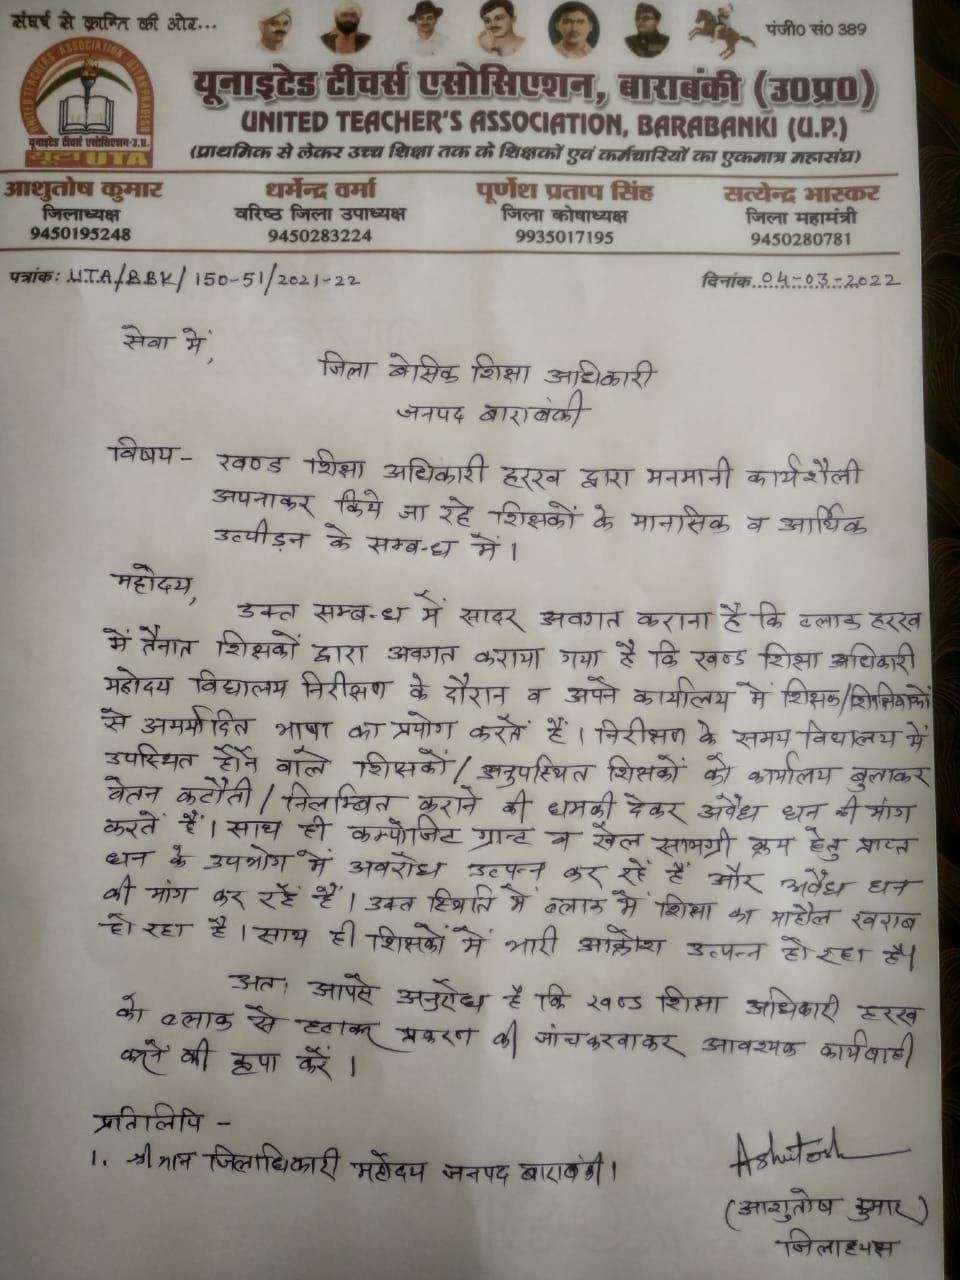 संघर्ष से क्रान्ति की ओर...
पंजी0 सं0 389
UNITED TEACHERS ASSOCIATION UTTAR PRADESH
यूनाइटेड टीचर्स एसोसिएशन-उ.प्र.
यूटा UTA
यूनाइटेड टीचर्स एसोसिएशन, बाराबंकी (उ0प्र0)
UNITED TEACHER'S ASSOCIATION, BARABANKI (U.P.)
(प्राथमिक से लेकर उच्च शिक्षा तक के शिक्षकों एवं कर्मचारियों का एकमात्र महासंघ)
आशुतोष कुमार धर्मेन्द्र वर्मा पूर्णेश प्रताप सिंह सत्येन्द्र भास्कर
जिलाध्यक्ष वरिष्ठ जिला उपाध्यक्ष जिला कोषाध्यक्ष जिला महामंत्री
9450195248 9450283224 9935017195 9450280781
पत्रांक: U.T.A/B.B.K/150-51/2021-22 दिनांक 04-03-2022
सेवा में,
जिला बेसिक शिक्षा अधिकारी
जनपद बाराबंकी
विषय - खण्ड शिक्षा अधिकारी हरख द्वारा मनमानी कार्यशैली
अपनाकर किये जा रहे शिक्षकों के मानसिक व आर्थिक
उत्पीड़न के सम्बन्ध में।
महोदय,
उक्त सम्बन्ध में सादर अवगत कराना है कि ब्लाक हरख
में तैनात शिक्षकों द्वारा अवगत कराया गया है कि खण्ड शिक्षा अधिकारी
महोदय विद्यालय निरीक्षण के दौरान व अपने कार्यालय में शिक्षक/शिक्षिकाओं
से अमर्यादित भाषा का प्रयोग करतें हैं। निरीक्षण के समय विद्यालय में
उपस्थित होने वाले शिक्षकों/अनुपस्थित शिक्षकों को कार्यालय बुलाकर
वेतन कटौती/निलम्बित कराने की धमकी देकर अवैध धन की मांग
करतें हैं। साथ ही कम्पोजिट ग्रान्ट व खेल सामग्री क्रय हेतु प्राप्त
धन के उपभोग में अवरोध उत्पन्न कर रहें हैं और अवैध धन
की मांग कर रहें हैं। उक्त स्थिति में ब्लाक में शिक्षा का माहौल खराब
हो रहा है। साथ ही शिक्षकों में भारी आक्रोश उत्पन्न हो रहा है।
अतः आपसे अनुरोध है कि खण्ड शिक्षा अधिकारी हरख
को ब्लाक से हटाकर प्रकरण की जांच करवाकर आवश्यक कार्यवाही
करने की कृपा करें।
प्रतिलिपि -
1. श्रीमान जिलाधिकारी महोदय जनपद बाराबंकी।
Ashutosh
(आशुतोष कुमार)
जिलाध्यक्ष